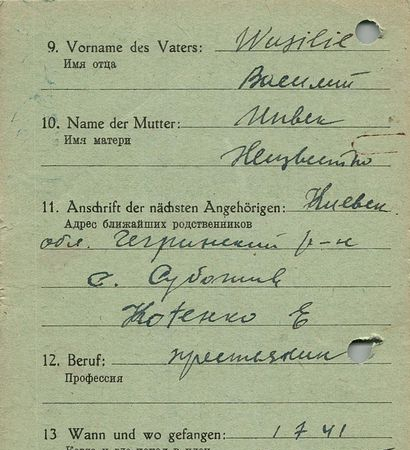 9. Vorname des Vaters: Wasilie
Имя отца
Василий
10. Name der Mutter:
Имя матери
Неизвестно
11. Anschrift der nächsten Angehörigen: Киевск
Адрес ближайших родственников
обл. р-н
с. Суботив
Котенко Е
12. Beruf: крестьянин
Профессия
13 Wann und wo gefangen: 1 7 41